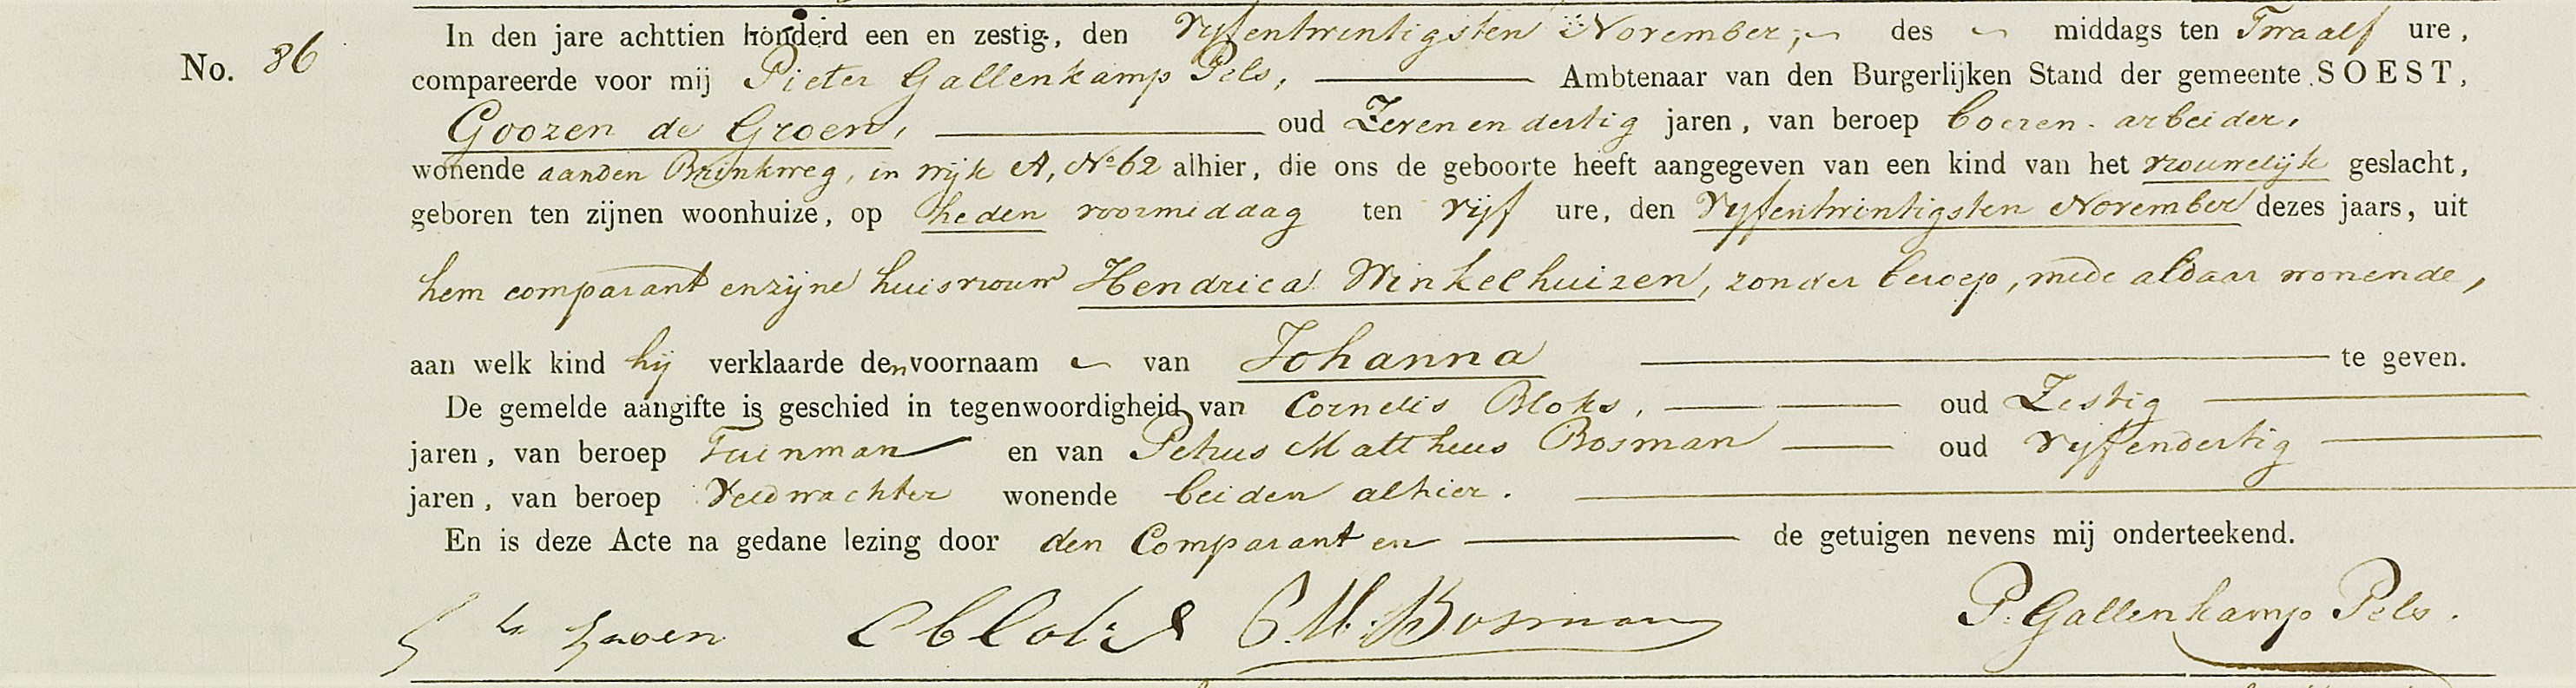 No. 86
In den jare achttien honderd een en zestig, den Vyfentwintigsten November, des middags ten Twaalf ure,
compareerde voor mij Pieter Gallenkamp Pels, Ambtenaar van den Burgerlijken Stand der gemeente SOEST,
Goozen de Groen, oud Zevenendertig jaren, van beroep boeren-arbeider,
wonende aanden Brinkweg, in wijk A, No 62 alhier, die ons de geboorte heeft aangegeven van een kind van het vrouwelijk geslacht,
geboren ten zijnen woonhuize, op heden voormiddag ten vijf ure, den Vyfentwintigsten November dezes jaars, uit
hem comparant en zijne huisvrouw Hendrica Winkelhuizen, zonder beroep, mede aldaar wonende,
aan welk kind hij verklaarde den voornaam van Johanna te geven.
De gemelde aangifte is geschied in tegenwoordigheid van Cornelis Bloks, oud Zestig
jaren, van beroep Tuinman en van Petrus Mattheus Bosman oud vyfendertig
jaren, van beroep Veldwachter wonende beiden alhier.
En is deze Acte na gedane lezing door den Comparant en de getuigen nevens mij onderteekend.
G de Groen C Bloks P. M. Bosman P. Gallenkamp Pels.